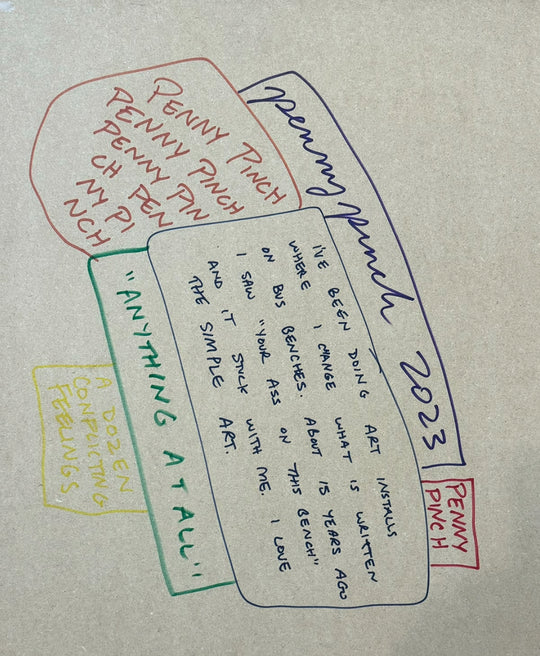 penny pinch 2023
PENNY
PINCH
PENNY PINCH
PENNY PINCH
PENNY PIN
CH PEN
NY PI
NCH
I'VE BEEN DOING ART INSTALLS
WHERE I CHANGE WHAT IS WRITTEN
ON BUS BENCHES. ABOUT 15 YEARS AGO
I SAW "YOUR ASS ON THIS BENCH"
AND IT STUCK WITH ME. I LOVE
THE SIMPLE ART.
"ANYTHING AT ALL"
A DOZEN
CONFLICTING
FEELINGS